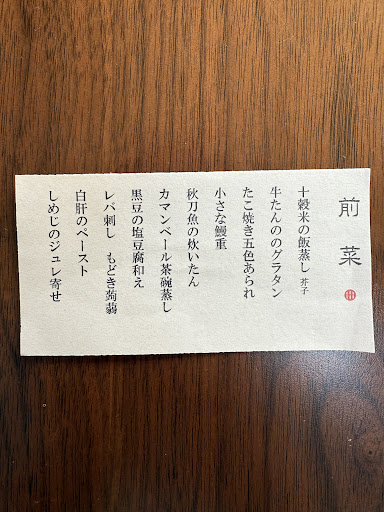 前菜
十穀米の飯蒸し 芥子
牛たんののグラタン
たこ焼き五色あられ
小さな鰻重
秋刀魚の炊いたん
カマンベール茶碗蒸し
黒豆の塩豆腐和え
レバ刺し もどき蒟蒻
白肝のペースト
しめじのジュレ寄せ